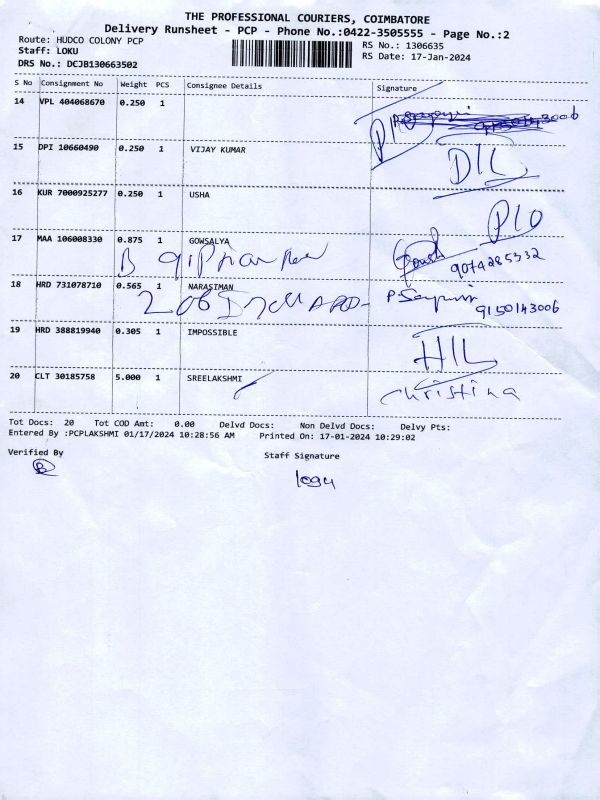 THE PROFESSIONAL COURIERS, COIMBATORE
Delivery Runsheet - PCP - Phone No.:0422-3505555 - Page No.:2
Route: HUDCO COLONY PCP
RS No.: 1306635
Staff: LOKU
RS Date: 17-Jan-2024
DRS No.: DCJB130663502
S No Consignment No Weight PCS Consignee Details Signature
14 VPL 404068670 0.250 1
15 DPI 10660490 0.250 1 VIJAY KUMAR DIL
16 KUR 7000925277 0.250 1 USHA P10
17 MAA 106008330 0.875 1 GOWSALYA
9074285332
18 HRD 731078710 0.565 1 NARASIMAN
9150143006
19 HRD 388819940 0.305 1 IMPOSSIBLE HIL
20 CLT 30185758 5.000 1 SREELAKSHMI Christina
Tot Docs: 20 Tot COD Amt: 0.00 Delvd Docs: Non Delvd Docs: Delvy Pts:
Entered By :PCPLAKSHMI 01/17/2024 10:28:56 AM Printed On: 17-01-2024 10:29:02
Verified By Staff Signature
logu